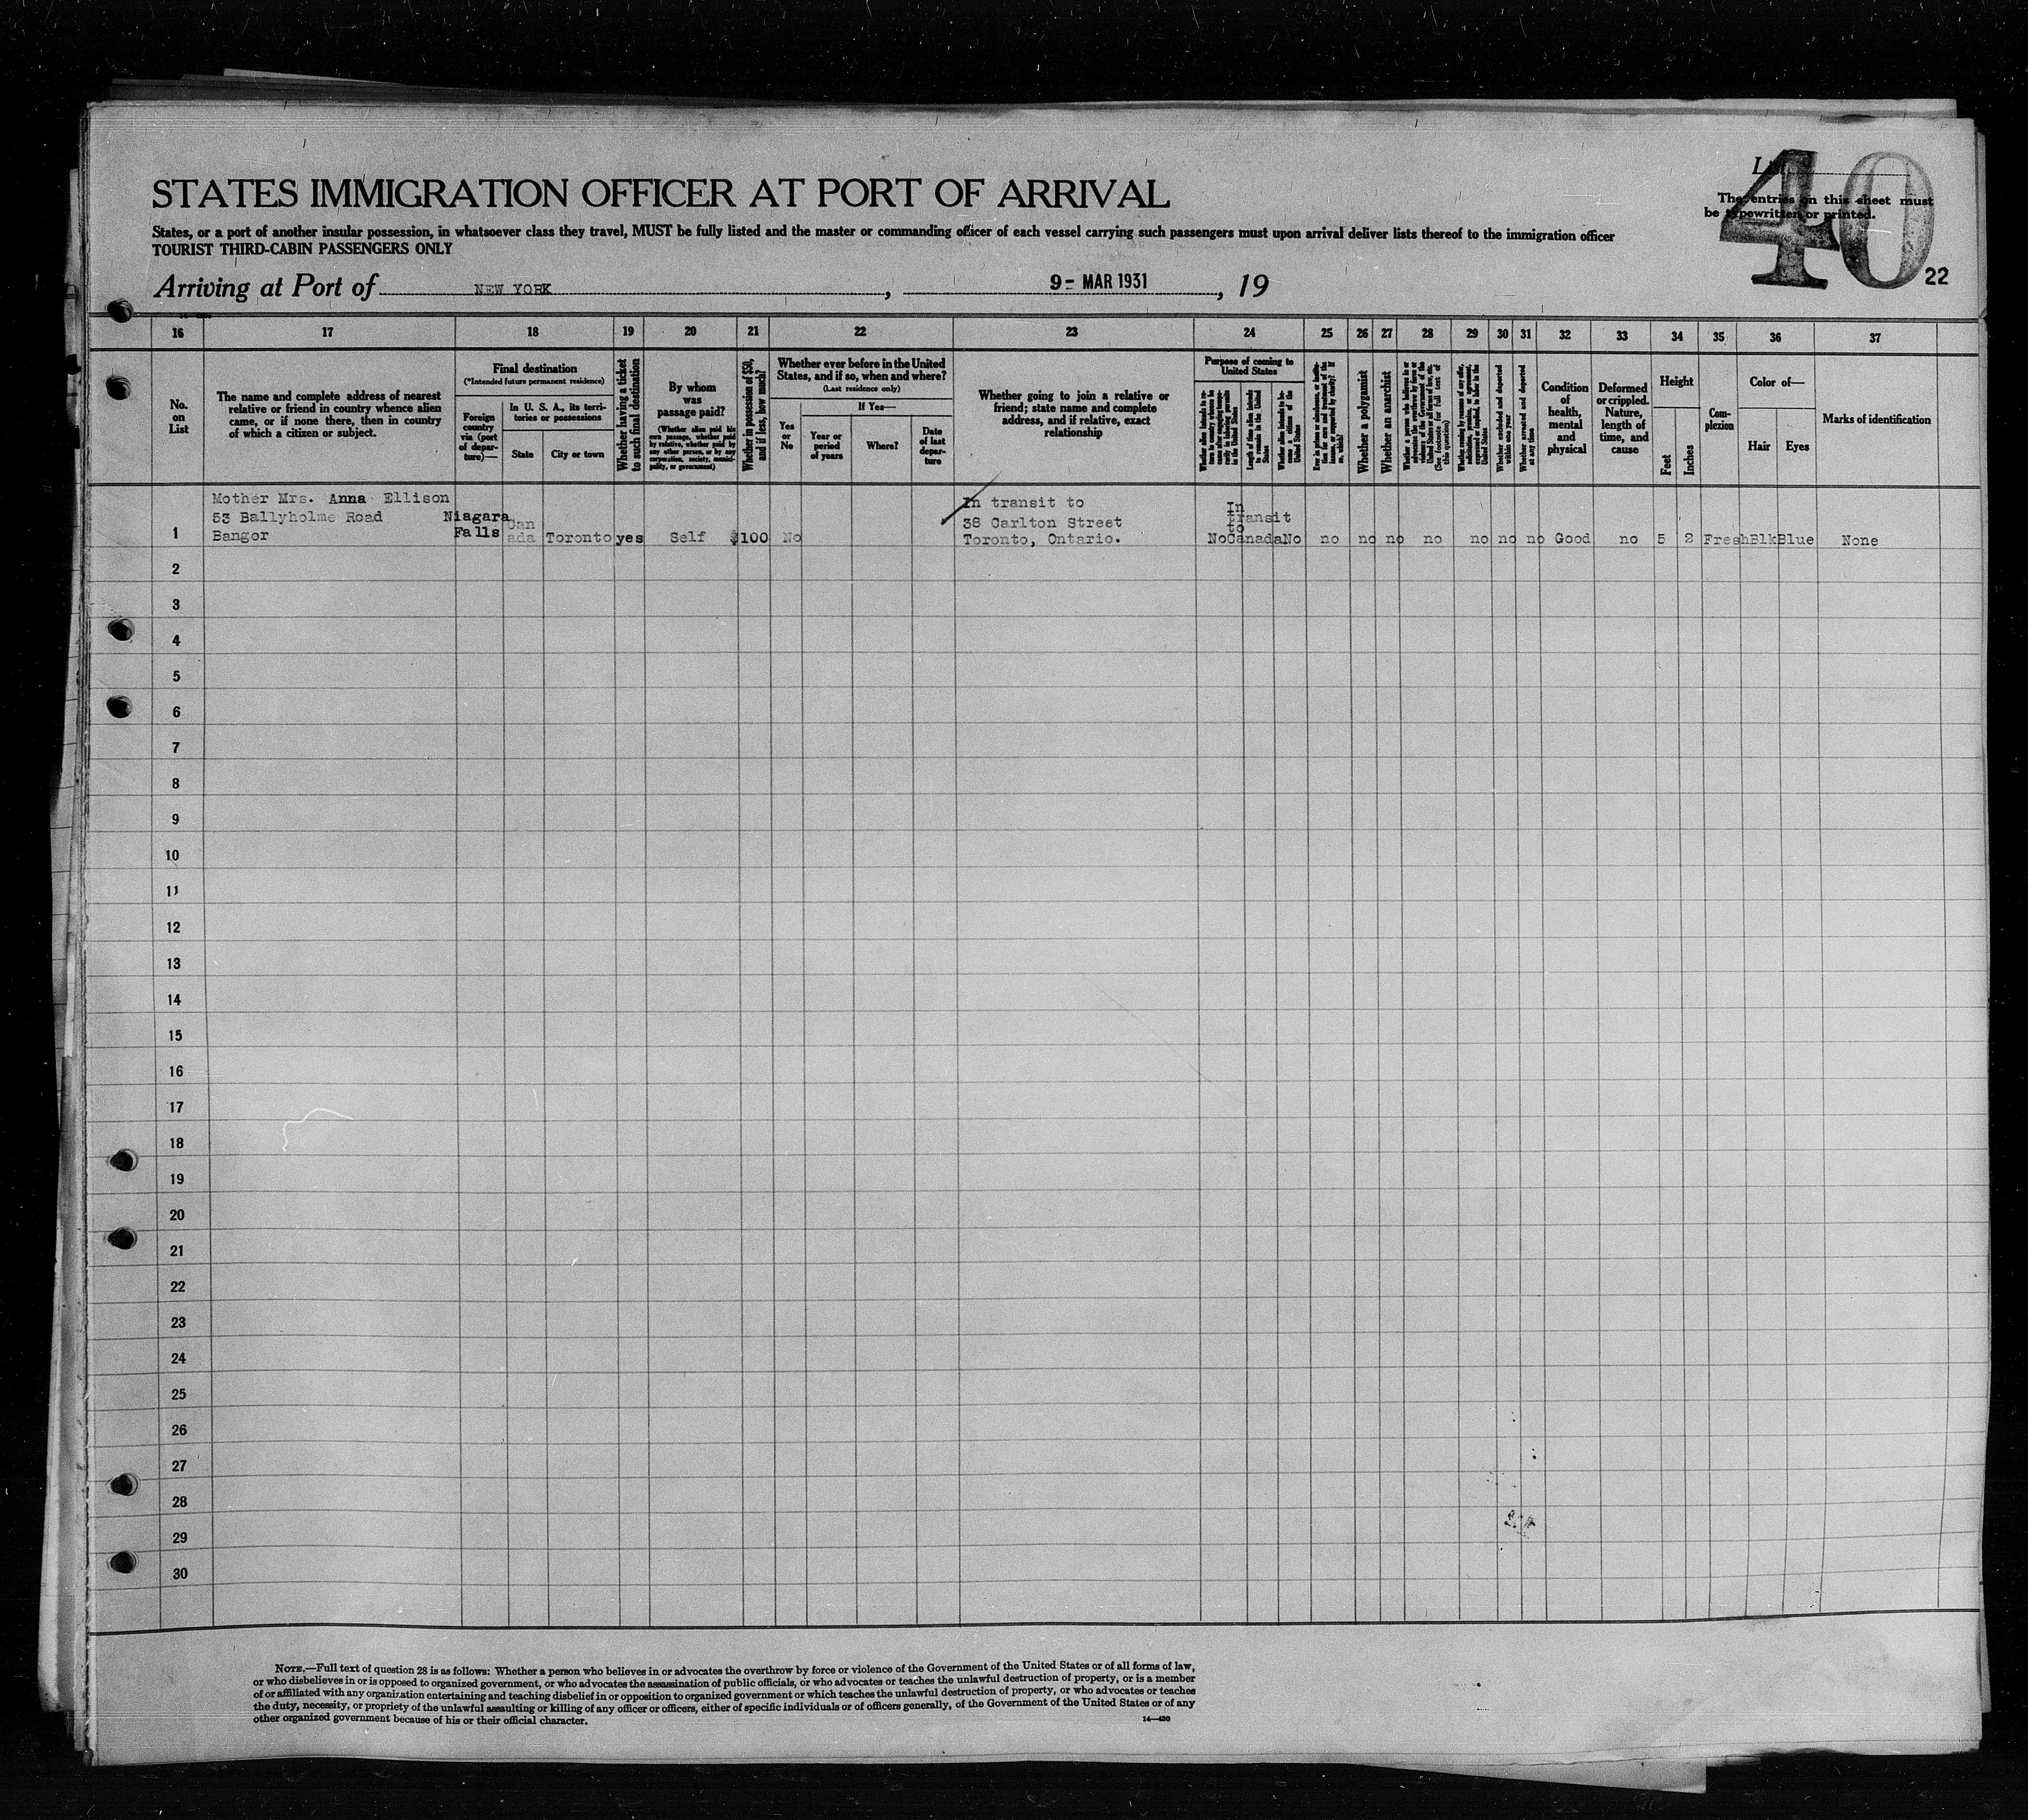 List
40
The entries on this sheet must
be typewritten or printed.
22
STATES IMMIGRATION OFFICER AT PORT OF ARRIVAL
States, or a port of another insular possession, in whatsoever class they travel, MUST be fully listed and the master or commanding officer of each vessel carrying such passengers must upon arrival deliver lists thereof to the immigration officer
TOURIST THIRD-CABIN PASSENGERS ONLY
Arriving at Port of NEW YORK, 9- MAR 1931, 19
16 17 18 19 20 21 22 23 24 25 26 27 28 29 30 31 32 33 34 35 36 37
No.
on
List
The name and complete address of nearest
relative or friend in country whence alien
came, or if none there, then in country
of which a citizen or subject.
Final destination
(*Intended future permanent residence)
Foreign
country
via (port
of depar-
ture)—
In U. S. A., its terri-
tories or possessions
State
City or town
Whether having a ticket
to such final destination
By whom
was
passage paid?
(Whether alien paid his
own passage, whether paid
by relative, whether paid by
any other person, or by any
corporation, society, munici-
pality, or government)
Whether in possession of $50,
and if less, how much?
Whether ever before in the United
States, and if so, when and where?
(Last residence only)
Yes
or
No
If Yes—
Year or
period
of years
Where?
Date
of last
depar-
ture
Whether going to join a relative or
friend; state name and complete
address, and if relative, exact
relationship
Purpose of coming to
United States
Length of time alien intends
to remain in the United
States
Whether alien intends to be-
come a citizen of the
United States
Whether a polygamist
Whether an anarchist
(See footnote for full text of
this question)
Whether excluded and deported
within one year
Whether arrested and deported
at any time
Condition
of
health,
mental
and
physical
Deformed
or crippled.
Nature,
length of
time, and
cause
Height
Feet
Inches
Com-
plexion
Color of—
Hair
Eyes
Marks of identification
Mother Mrs. Anna Ellison
53 Ballyholme Road
Bangor
Niagara
Falls
Can
ada
Toronto
yes
Self
$100
No
In transit to
38 Carlton Street
Toronto, Ontario.
No
In
transit
to
Canada
No
no no no no no no no Good no 5 2 Fresh Blk Blue None
1
2
3
4
5
6
7
8
9
10
11
12
13
14
15
16
17
18
19
20
21
22
23
24
25
26
27
28
29
30
NOTE.—Full text of question 28 is as follows: Whether a person who believes in or advocates the overthrow by force or violence of the Government of the United States or of all forms of law,
or who disbelieves in or is opposed to organized government, or who advocates the assassination of public officials, or who advocates or teaches the unlawful destruction of property, or is a member
of or affiliated with any organization entertaining and teaching disbelief in or opposition to organized government or which teaches the unlawful destruction of property, or who advocates or teaches
the duty, necessity, or propriety of the unlawful assaulting or killing of any officer or officers, either of specific individuals or of officers generally, of the Government of the United States or of any
other organized government because of his or their official character.
14—430